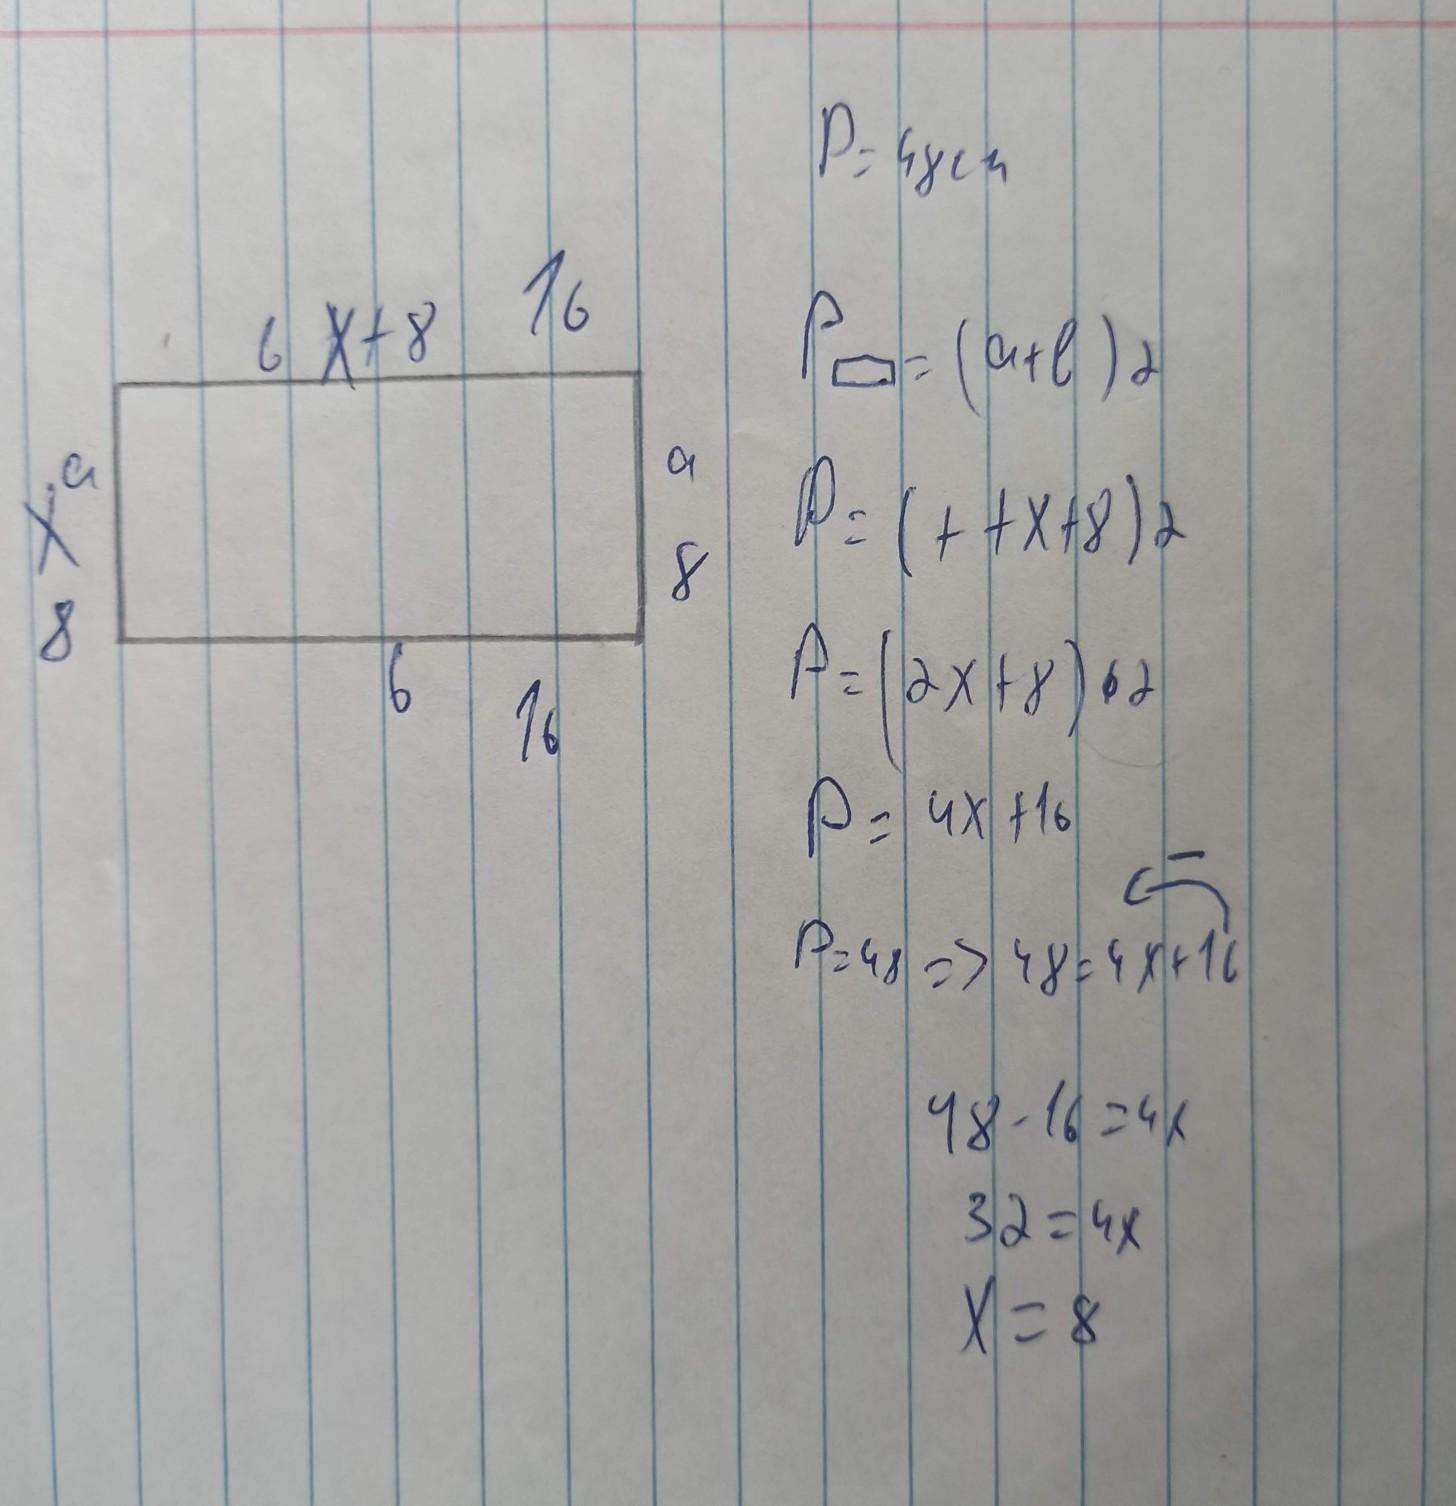 P=48см
в x+8 16
a
x
8
a
8
в
16
P▭=(a+в)2
P=(x+x+8)2
P=(2x+8)•2
P=4x+16
−
P=48=>48=4x+16
48-16=4x
32=4x
x=8